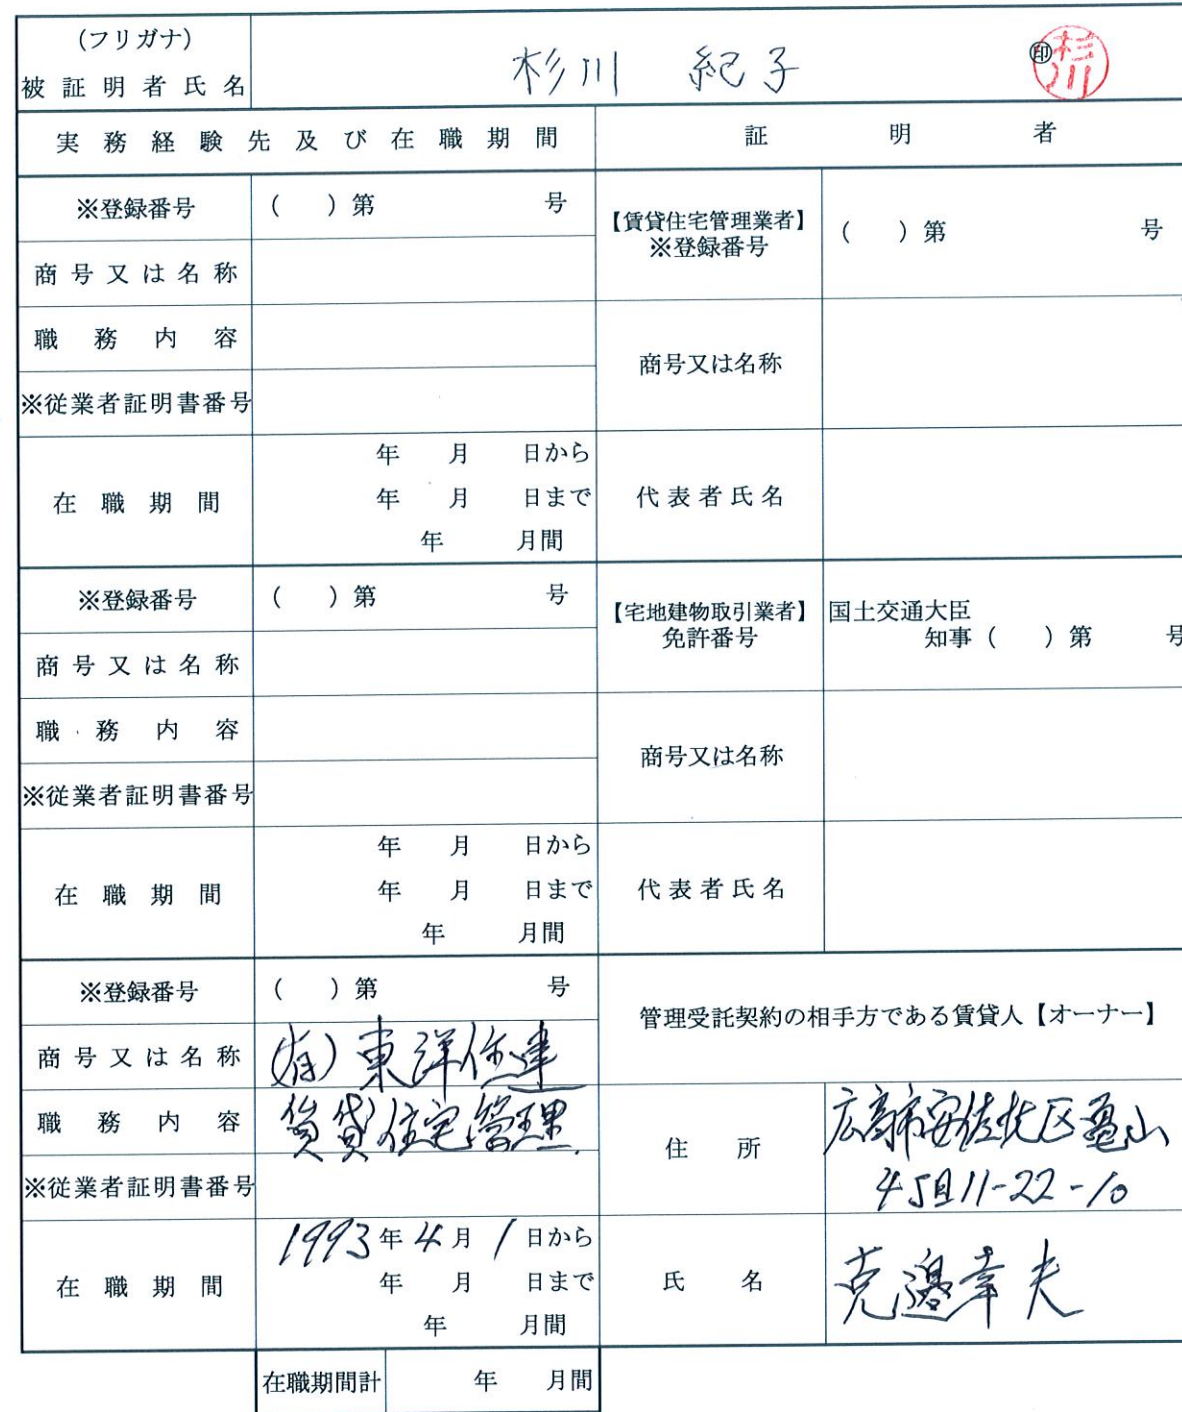 (フリガナ)
被証明者氏名
杉川 紀子
㊞
杉川
実務経験先及び在職期間
証明者
※登録番号
( )第 号
商号又は名称
職務内容
※従業者証明書番号
在職期間
年 月 日から
年 月 日まで
年 月間
【賃貸住宅管理業者】
※登録番号
( )第 号
商号又は名称
代表者氏名
※登録番号
( )第 号
商号又は名称
職務内容
※従業者証明書番号
在職期間
年 月 日から
年 月 日まで
年 月間
【宅地建物取引業者】
免許番号
国土交通大臣
知事( )第 号
商号又は名称
代表者氏名
※登録番号
( )第 号
商号又は名称
(有)東洋住建
職務内容
賃貸住宅管理
※従業者証明書番号
在職期間
1993年4月1日から
年 月 日まで
年 月間
管理受託契約の相手方である賃貸人【オーナー】
住所
広島市安佐北区亀山
4丁目11-22-10
氏名
邊幸夫
在職期間計
年 月間